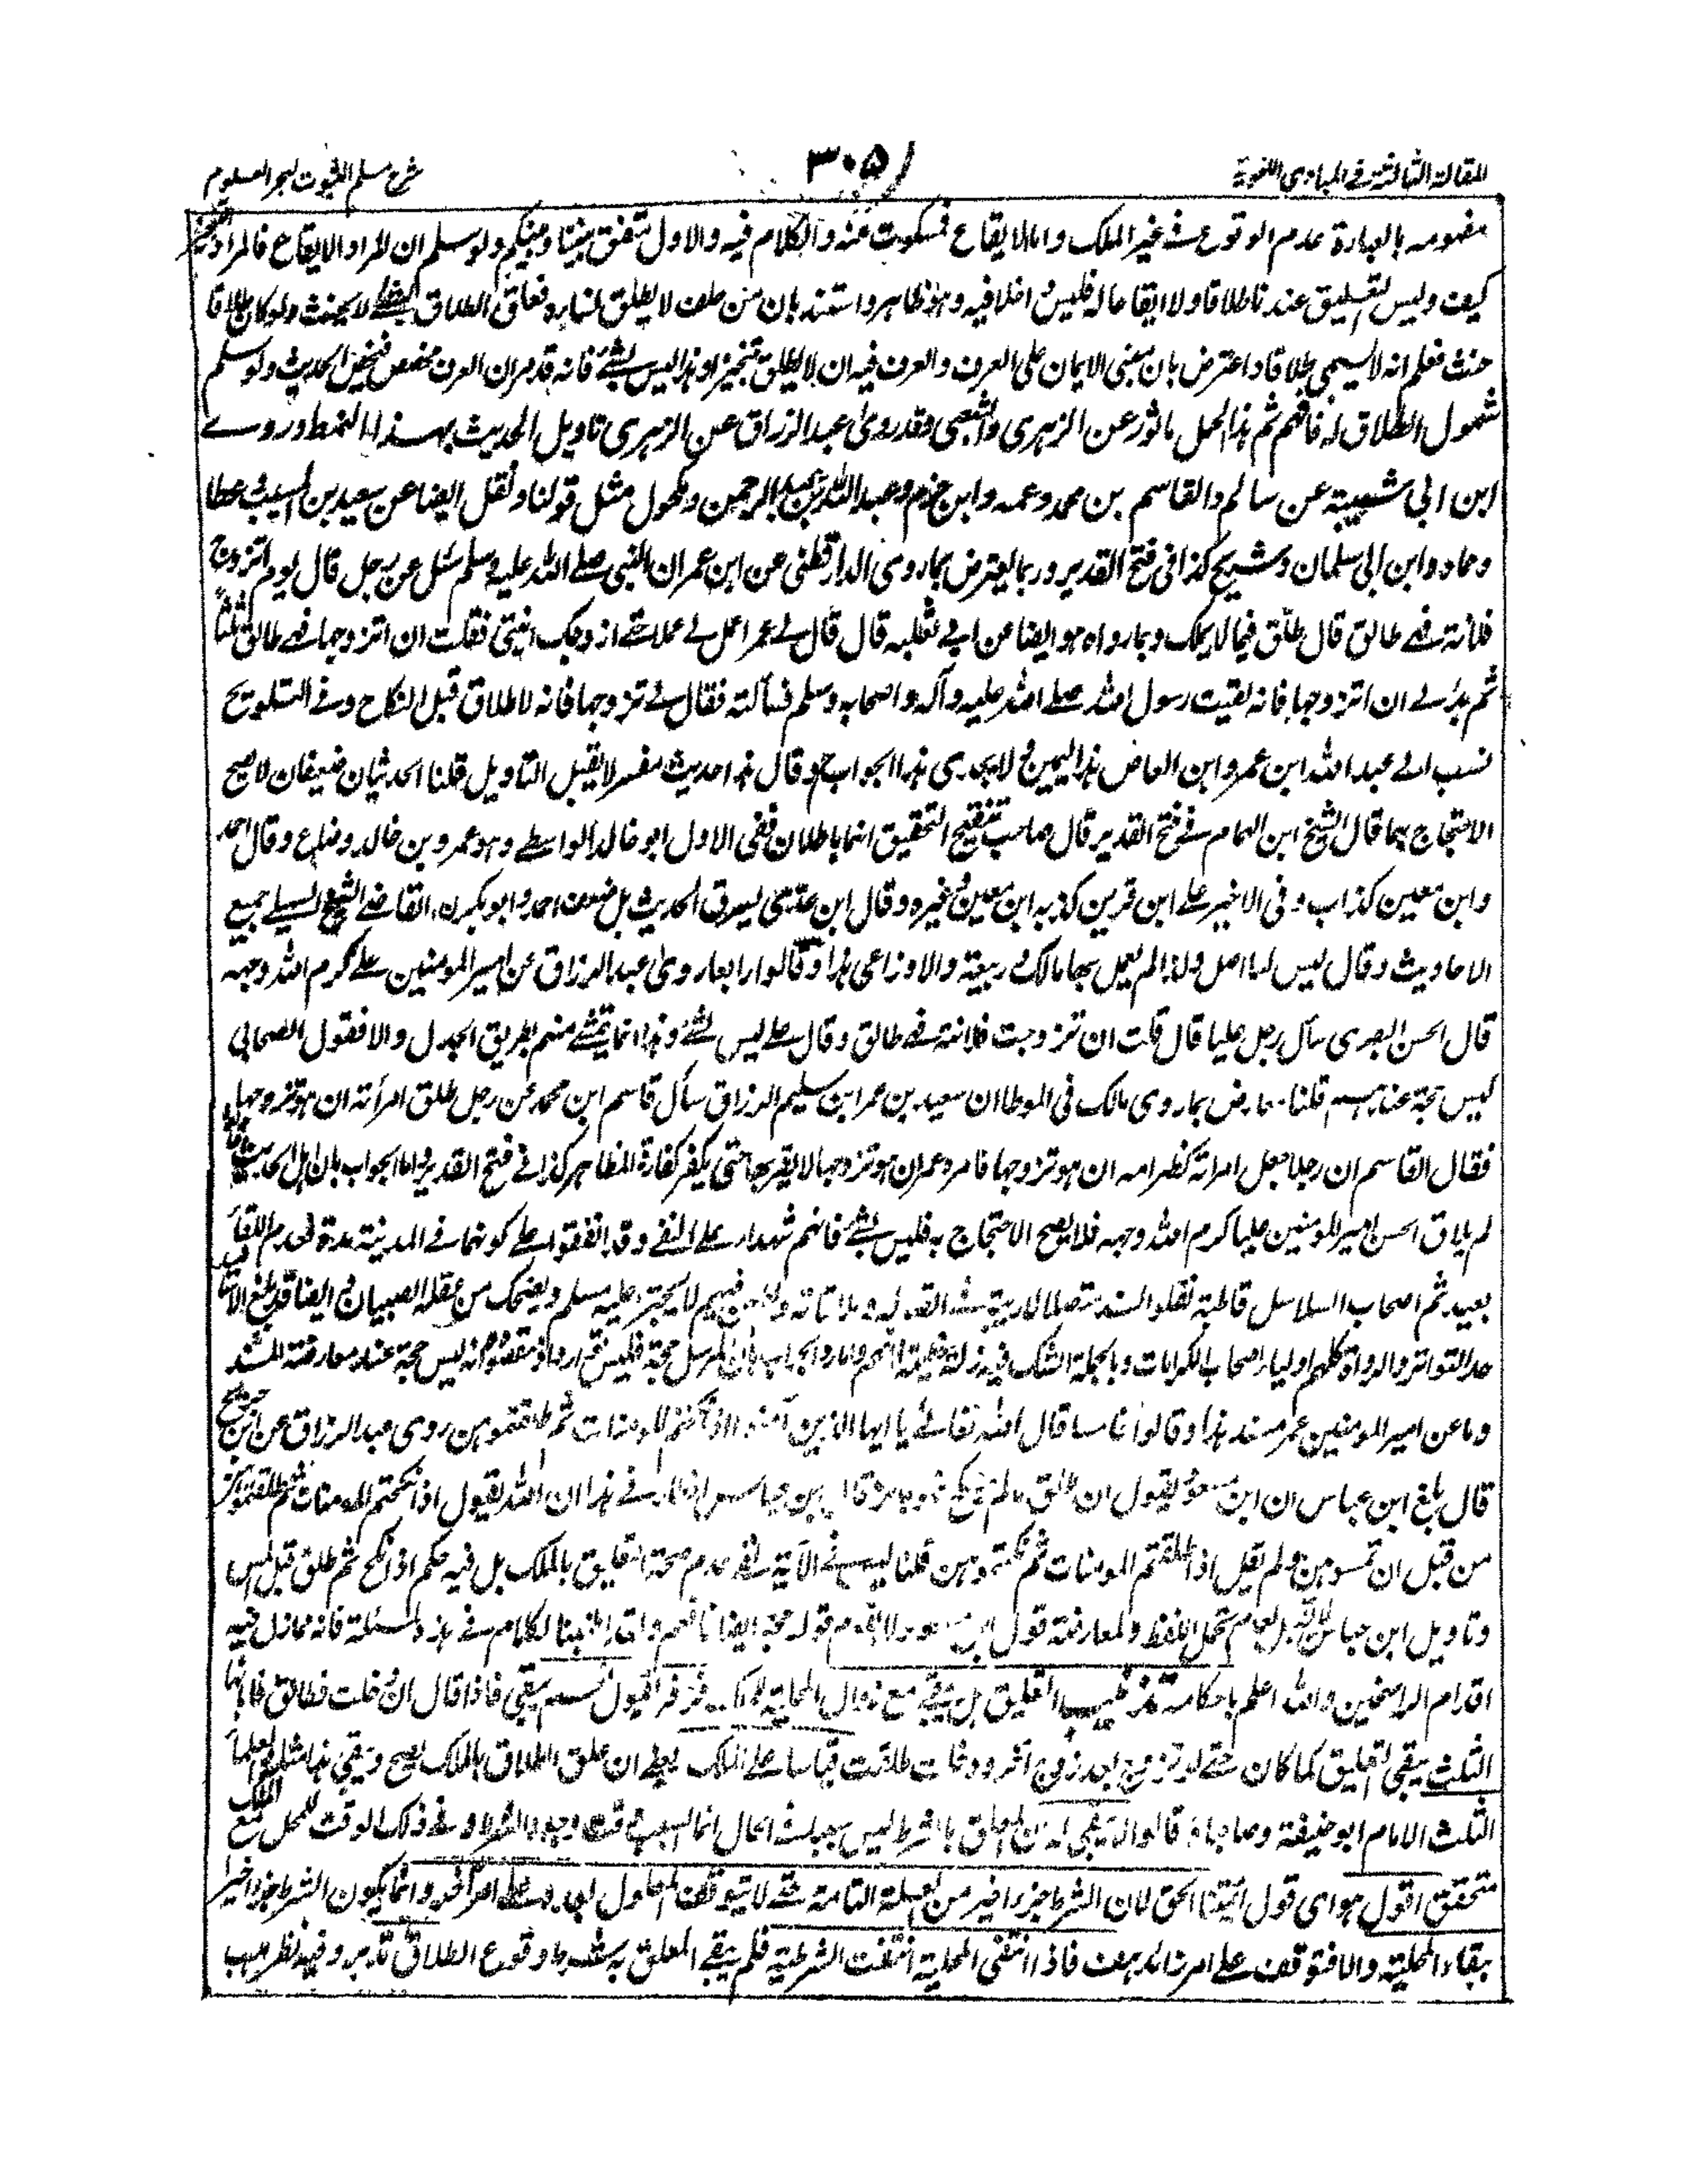 المقالة الثالثة في المبادي اللغوية
٣٠٥
شرح مسلم الثبوت لبحر العلوم
مفهومه بالعبارة عدم الوقوع في غير الملك واما الايقاع فمسكوت عنه والكلام فيه والاول متفق بيننا وبينكم ولو سلم ان المراد الايقاع فالمراد التنجيز
كيف وليس التعليق عندنا طلاقا ولا ايقاعا له فليس داخلا فيه وهو ظاهر واستند بان من حلف لا يطلق نساءه فعلق الطلاق لا يحنث ولو كان طلاقا
حنث فعلم انه لا يسمى طلاقا واعترض بان مبنى الايمان على العرف والعرف فيه ان لا يطلق تنجيزا وهذا ليس بشئ فانه قد مر ان العرف مخصص فيخص الحديث ولو سلم
شمول الطلاق له فافهم ثم هذا الحمل ماثور عن الزهري والشعبي وقد روى عبد الرزاق عن الزهري تاويل الحديث بهذا النمط وروى
ابن ابي شيبة عن سالم والقاسم بن محمد وعمه وابن حزم وعبد الله بن عبد الرحمن ومكحول مثل قولنا ونقل ايضا عن سعيد بن المسيب وعطا
وحماد وابن ابي سلمان وشريح كذا في فتح القدير وربما يعترض بما روى الدارقطني عن ابن عمر ان النبي صلى الله عليه وسلم سئل عن رجل قال يوم اتزوج
فلانة فهي طالق قال طلق فيما لا يملك وبما رواه هو ايضا عن ابي ثعلبه قال قال لي عمر اعمل لي عملا حتى ازوجك ابنتي فقلت ان اتزوجها فهي طالق ثلثا
ثم بدا لي ان اتزوجها فانه لقيت رسول الله صلى الله عليه وآله واصحابه وسلم فسألته فقال لي تزوجها فانه لا طلاق قبل النكاح وفي التلويح
نسب الى عبد الله ابن عمرو ابن العاص هذا اليمين ولا يجري هذا الجواب وقال هذا حديث مفسر لا يقبل التاويل قلنا الحديثان ضعيفان لا يصح
الاحتجاج بهما قال الشيخ ابن الهمام في فتح القدير قال صاحب تنقيح التحقيق انما باطلان ففي الاول ابو خالد الواسطي وهو عمرو بن خالد وضاع وقال احمد
وابن معين كذاب وفي الاخير علي ابن قرين كذبه ابن معين وغيره وقال ابن عدي يسرق الحديث بل ضعف احمد وابو بكر القاضي جميع
الاحاديث وقال ليس لها اصل ولذا لم يعمل بها مالك وربيعة والاوزاعي هذا وقالوا رابعا روى عبد الرزاق عن امير المومنين علي كرم الله وجهه
قال الحسن البصري سأل رجل عليا قال قلت ان تزوجت فلانة فهي طالق وقال علي ليس بشئ وهذا انما يتمشى منهم بطريق الجدل والا فقول الصحابي
ليس حجة عندهم قلنا معارض بما روى مالك في الموطا ان سعيد بن عمر ابن سليم الزراق سأل قاسم ابن محمد عن رجل طلق امرأته ان هو تزوجها
فقال القاسم ان رجلا جعل امراته كظهر امه ان هو تزوجها فامره عمر ان هو تزوجها لا يقربها حتى يكفر كفارة المظاهر كذا في فتح القدير واما الجواب بان اهل الحديث
لم يلاق الحسن امير المومنين عليا كرم الله وجهه فلا يصح الاحتجاج به فليس بشئ فانهم شهدا على النفي وقد اتفقوا على كونهما في المدينة مدة فعدم اللقاء
بعيد ثم اصحاب السلاسل قاطبة نقلوا السند متصلا لا ريبة في ويضحك من عقله الصبيان ايضا قد بلغ
حد التواتر والرواة كلهم اولياء اصحاب الكرامات وبالجملة الشك فيه زلة عظيمة فافهم واما الجواب بان المرسل حجة ليس حجة عند معارضة المسند
وما عن امير المومنين عمر مسند هذا وقالوا خامسا قال الله تعالى يا ايها الذين آمنوا اذا نكحتم المومنات ثم طلقتموهن روى عبد الرزاق عن ابن جريج
قال بلغ ابن عباس ان ابن مسعود يقول ان طلق ما لم ينكح فهو جائز قال ابن عباس اخطأ في هذا ان الله يقول اذا نكحتم المومنات ثم طلقتموهن
من قبل ان تمسوهن ولم يقل اذا طلقتم المومنات ثم نكحتموهن قلنا ليس في الآية نفي عدم صحة التعليق بالملك بل فيه حكم اذا نكح ثم طلق قبل المس
وتاويل ابن عباس ولمعارضة قول ابن مسعود قوله حجة ايضا فافهم وانما اطنبنا الكلام في هذه المسئلة فانه مما زل فيه
اقدام الراسخين والله اعلم باحكامه التعليق بل يبقى مع زوال المحلية فزفر يقول نعم يبقى فاذا قال ان دخلت فطالق فابانها
الثلث يبقى التعليق كما كان حتى لو تزوج بعد زوج آخر ودخلت طلقت قياسا على الملك يعني ان علق الطلاق بالملك يصح ويبقى
الثلث الامام ابو حنيفة وصاحباه قالوا لا يبقى لان المعلق بالشرط ليس سببا في الحال انما السبب وقت وجود الشرط وفي ذلك الوقت
متحقق اقول هو اي قول ائمتنا الحق لان الشرط جزء اخير من العلة التامة حتى لا يتوقف المعلول بعده على امر آخر وانما يكون الشرط جزءا اخيرا
ببقاء المحلية والا فتوقف على امر زائد بعده فاذا انتفى المحلية انتفت الشرطية فلم يبق المعلق به شرطا وقوع الطلاق تدبر وفيه نظر